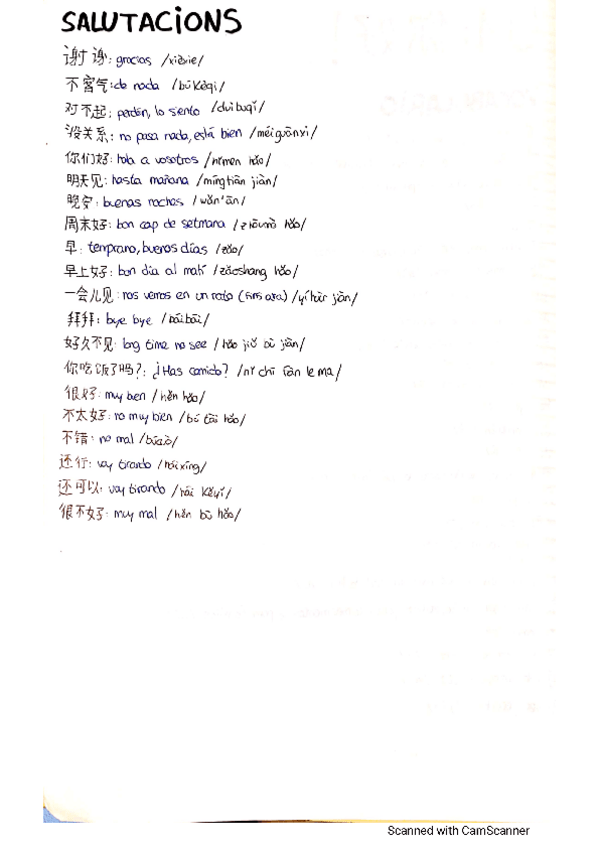 SALUTACIONS
谢谢: gracias /xièxie/
不客气: de nada /bú kèqi/
对不起: perdón, lo siento /duìbuqǐ/
没关系: no pasa nada, está bien /méiguānxi/
你们好: hola a vosotros /nǐmen hǎo/
明天见: hasta mañana /míngtiān jiàn/
晚安: buenas noches /wǎn'ān/
周末好: bon cap de setmana /zhōumò hǎo/
早: temprano, buenos días /zǎo/
早上好: bon dia al matí /zǎoshang hǎo/
一会儿见: nos vemos en un rato (fins ara) /yíhuìr jiàn/
拜拜: bye bye /báibāi/
好久不见: long time no see /hǎo jiǔ bú jiàn/
你吃饭了吗?: ¿Has comido? /nǐ chī fàn le ma/
很好: muy bien /hěn hǎo/
不太好: no muy bien /bú tài hǎo/
不错: no mal /búcuò/
还行: voy tirando /háixíng/
还可以: voy tirando /hái kěyǐ/
很不好: muy mal /hěn bù hǎo/
Scanned with CamScanner